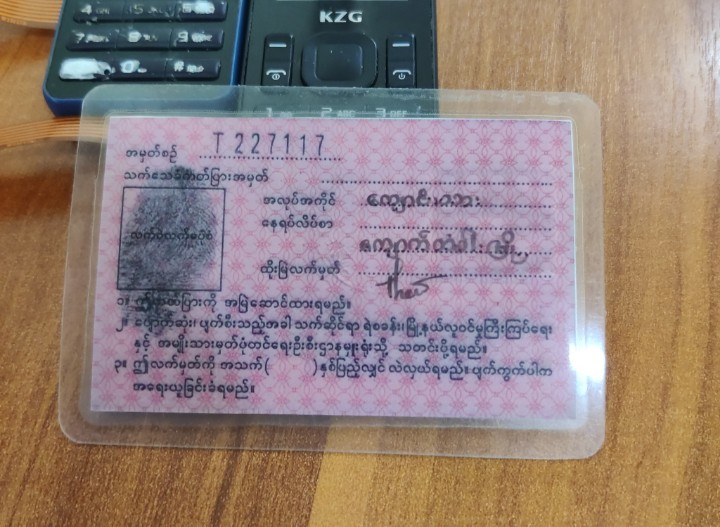 KZG
4
5
6
7
8
9
0
1
2 ABC
3 DEF
အမှတ်စဉ် T 227117
သက်သေခံကတ်ပြားအမှတ်
အလုပ်အကိုင် ကျောင်းသား
နေရပ်လိပ်စာ
ကျောက်တံခါးမြို့
ထိုးမြဲလက်မှတ်
၁။ ဤကတ်ပြားကို အမြဲဆောင်ထားရမည်။
၂။ ပျောက်ဆုံး၊ ပျက်စီးသည့်အခါ သက်ဆိုင်ရာ ရဲစခန်း၊ မြို့နယ်လူဝင်မှုကြီးကြပ်ရေး
နှင့် အမျိုးသားမှတ်ပုံတင်ရေးဦးစီးဌာနမှူးရုံးသို့ သတင်းပို့ရမည်။
၃။ ဤလက်မှတ်ကို အသက်( )နှစ်ပြည့်လျှင် လဲလှယ်ရမည်။ ပျက်ကွက်ပါက
အရေးယူခြင်းခံရမည်။